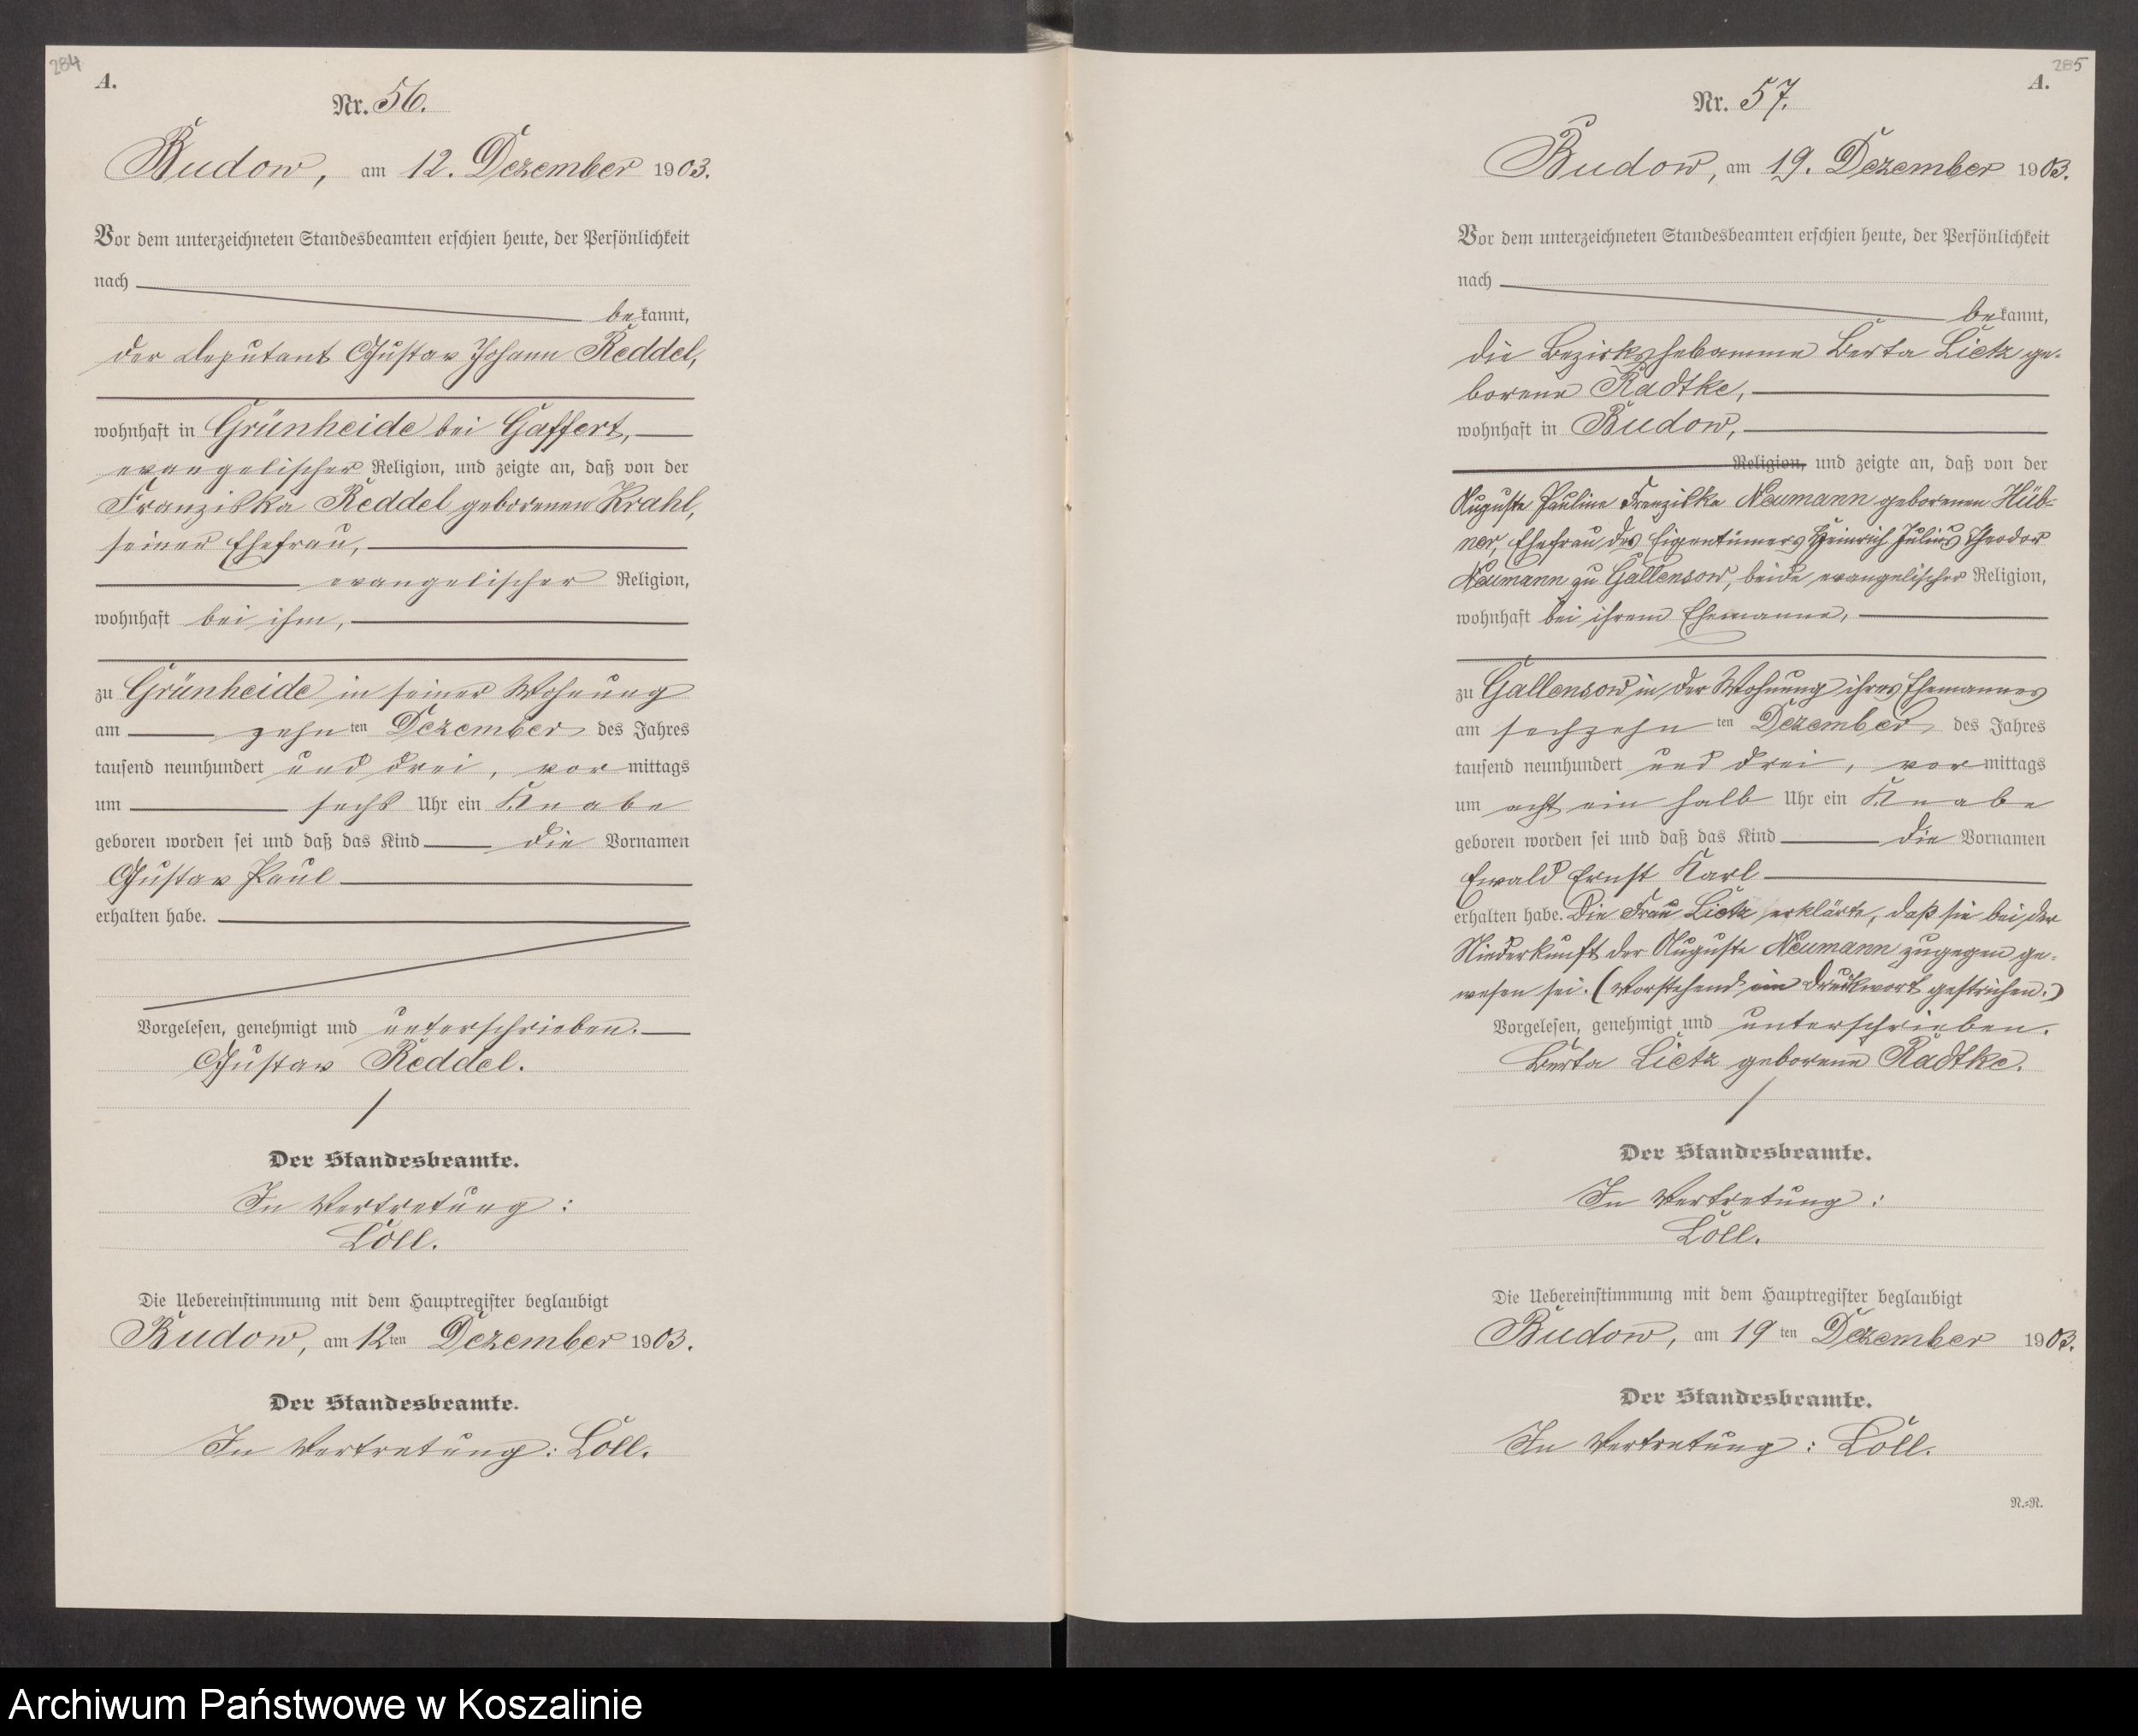 284
A.
Nr. 56.
Budow, am 12. Dezember 1903.
Vor dem unterzeichneten Standesbeamten erschien heute, der Persönlichkeit
nach
bekannt,
der Deputant Gustav Johann Reddel,
wohnhaft in Grünheide bei Gaffert,
evangelischer Religion, und zeigte an, daß von der
Franziska Reddel geborenen Krahl,
seiner Ehefrau,
evangelischer Religion,
wohnhaft bei ihm,
zu Grünheide in seiner Wohnung
am zehnten Dezember des Jahres
tausend neunhundert und drei, vormittags
um sechs Uhr ein Knabe
geboren worden sei und daß das Kind die Vornamen
Gustav Paul
erhalten habe.
Vorgelesen, genehmigt und unterschrieben.
Gustav Reddel.
Der Standesbeamte.
In Vertretung:
Loll.
Die Uebereinstimmung mit dem Hauptregister beglaubigt
Budow, am 12ten Dezember 1903.
Der Standesbeamte.
In Vertretung: Loll.
285
A.
Nr. 57.
Budow, am 19. Dezember 1903.
Vor dem unterzeichneten Standesbeamten erschien heute, der Persönlichkeit
nach
bekannt,
die Bezirkshebamme Berta Lietz ge-
borene Radtke,
wohnhaft in Budow,
Religion, und zeigte an, daß von der
Auguste Pauline Franziska Neumann geborenen Hüb-
ner, Ehefrau des Eigentümers Heinrich Julius Theodor
Neumann zu Gallensow, beide evangelischer Religion,
wohnhaft bei ihrem Ehemanne,
zu Gallensow in der Wohnung ihres Ehemannes
am sechzehnten Dezember des Jahres
tausend neunhundert und drei, vormittags
um acht ein halb Uhr ein Knabe
geboren worden sei und daß das Kind die Vornamen
Ewald Ernst Karl
erhalten habe. Die Frau Lietz erklärte, daß sie bei der
Niederkunft der Auguste Neumann zugegen ge-
wesen sei. (Vorstehend ein Druckwort gestrichen.)
Vorgelesen, genehmigt und unterschrieben.
Berta Lietz geborene Radtke.
Der Standesbeamte.
In Vertretung:
Loll.
Die Uebereinstimmung mit dem Hauptregister beglaubigt
Budow, am 19ten Dezember 1903.
Der Standesbeamte.
In Vertretung: Loll.
N.=R.
Archiwum Państwowe w Koszalinie